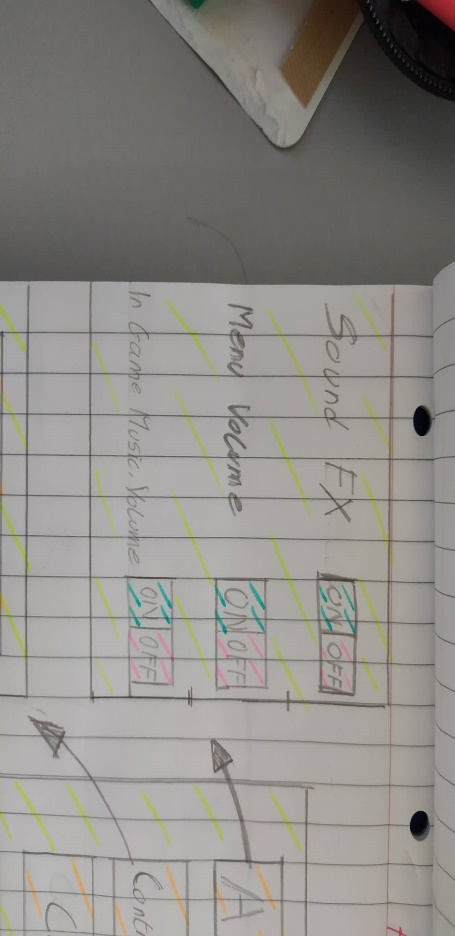 Sound FX ON OFF
Menu Volume ON OFF
In Game Music Volume ON OFF